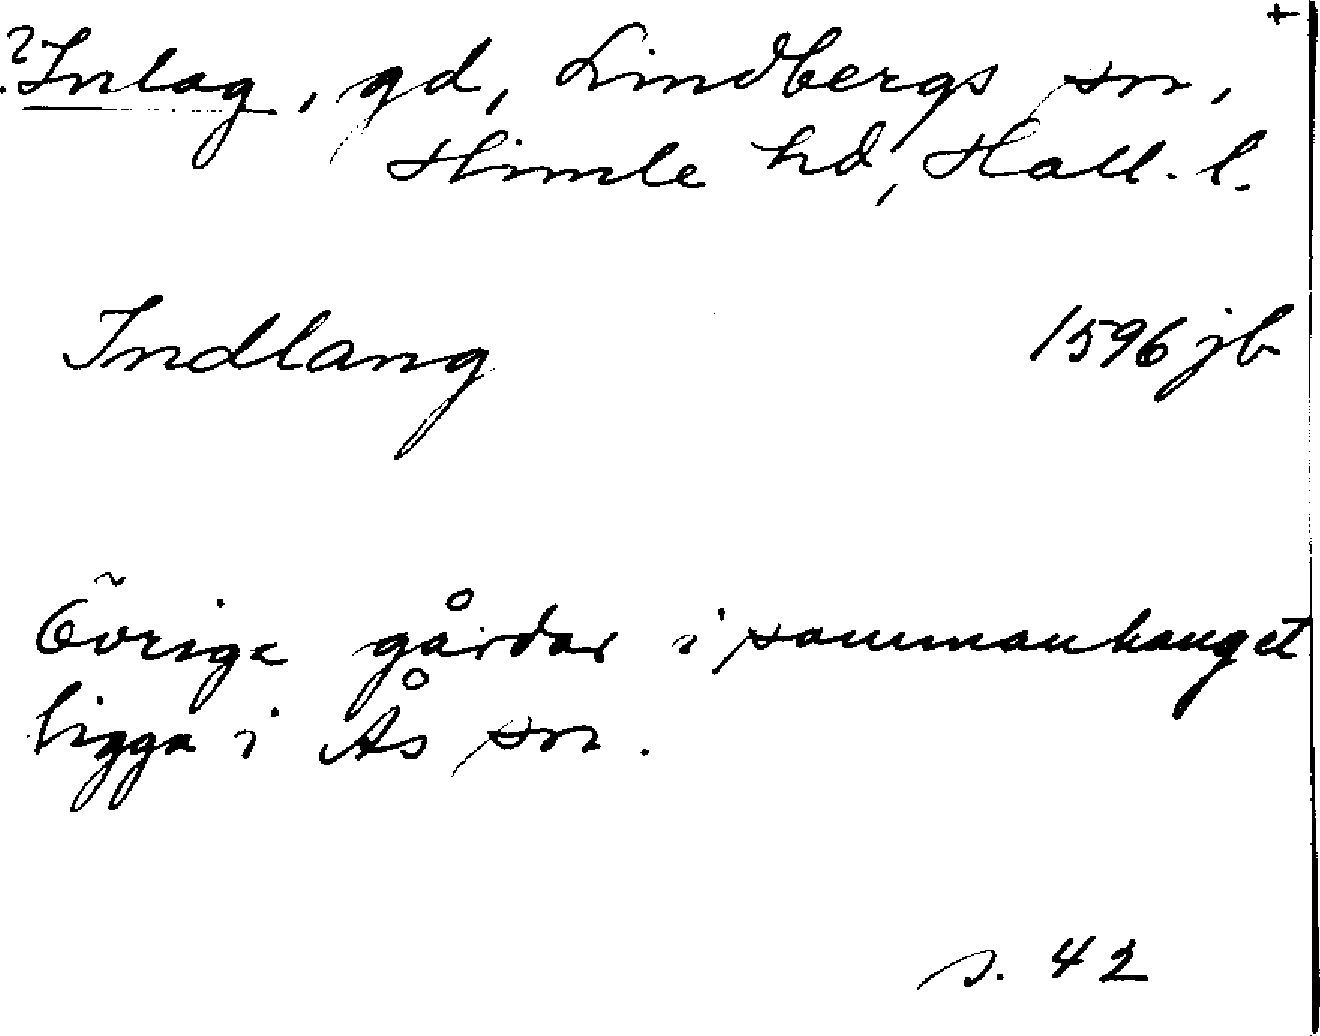 +
? Inlag, gd, Lindbergs sn,
Himle hd, Hall. l.
Indlang 1596 jb
Övriga gårdar i sammanhanget
ligga i Ås sn.
s. 42